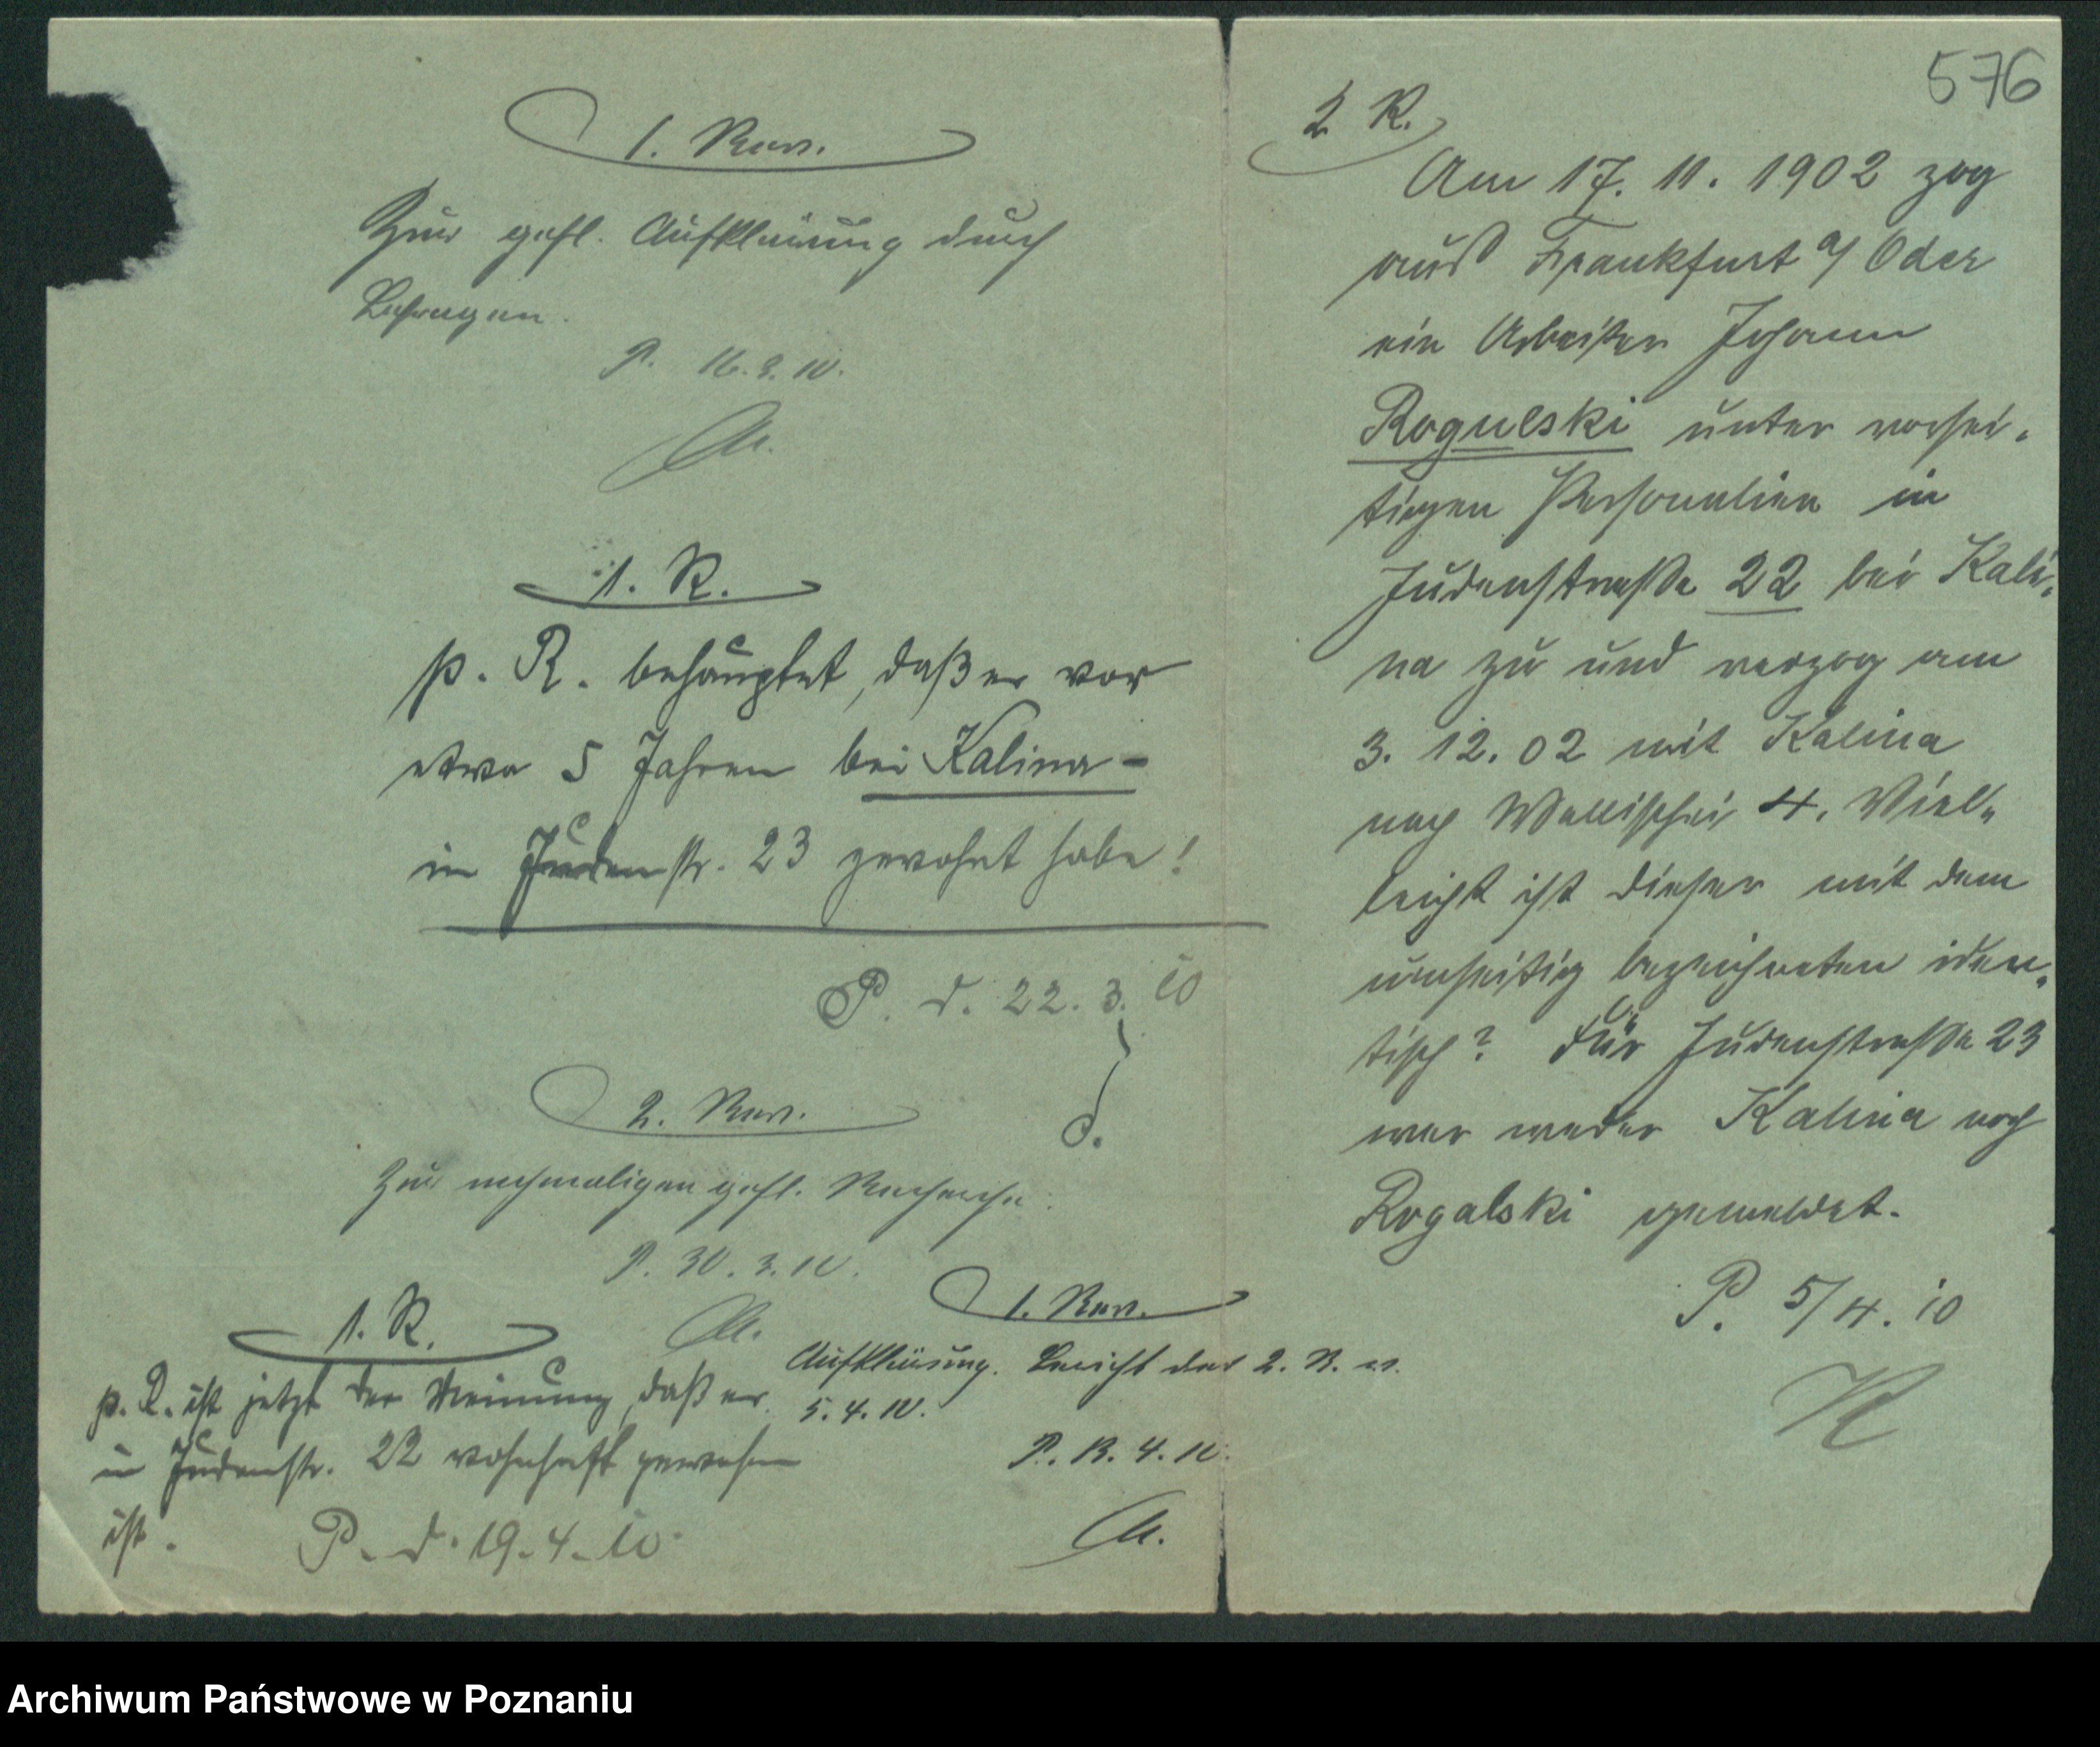 1. Rev.
Zur gefl. Aufklärung durch
Befragen.
P. 16.3.10.
1. R.
p. R. behauptet, daß er vor
etwa 5 Jahren bei Kalina -
in Judenstr. 23 gewohnt habe!
P. d. 22. 3. 10
2. Rev.
Zur nochmaligen gefl. Recherche.
P. 30. 3. 10.
1. R.
p. R. ist jetzt der Meinung, daß er
in Judenstr. 22 wohnhaft gewesen
ist.
P. d. 19. 4. 10.
1. Rev.
Aufklärung. Bericht des 2. R. v.
5. 4. 10.
P. 13. 4. 10.
576
2 R.
Am 17. 11. 1902 zog
aus Frankfurt a/ Oder
ein Arbeiter Johann
Rogulski unter vorsei-
tigen Personalien in
Judenstraße 22 bei Kali-
na zu und verzog am
3. 12. 02 mit Kalina
nach Wallischei 4. Viel-
leicht ist dieser mit dem
umseitig bezeichneten iden-
tisch? Für Judenstraße 23
war weder Kalina noch
Rogalski gemeldet.
P. 5/4. 10
Archiwum Państwowe w Poznaniu